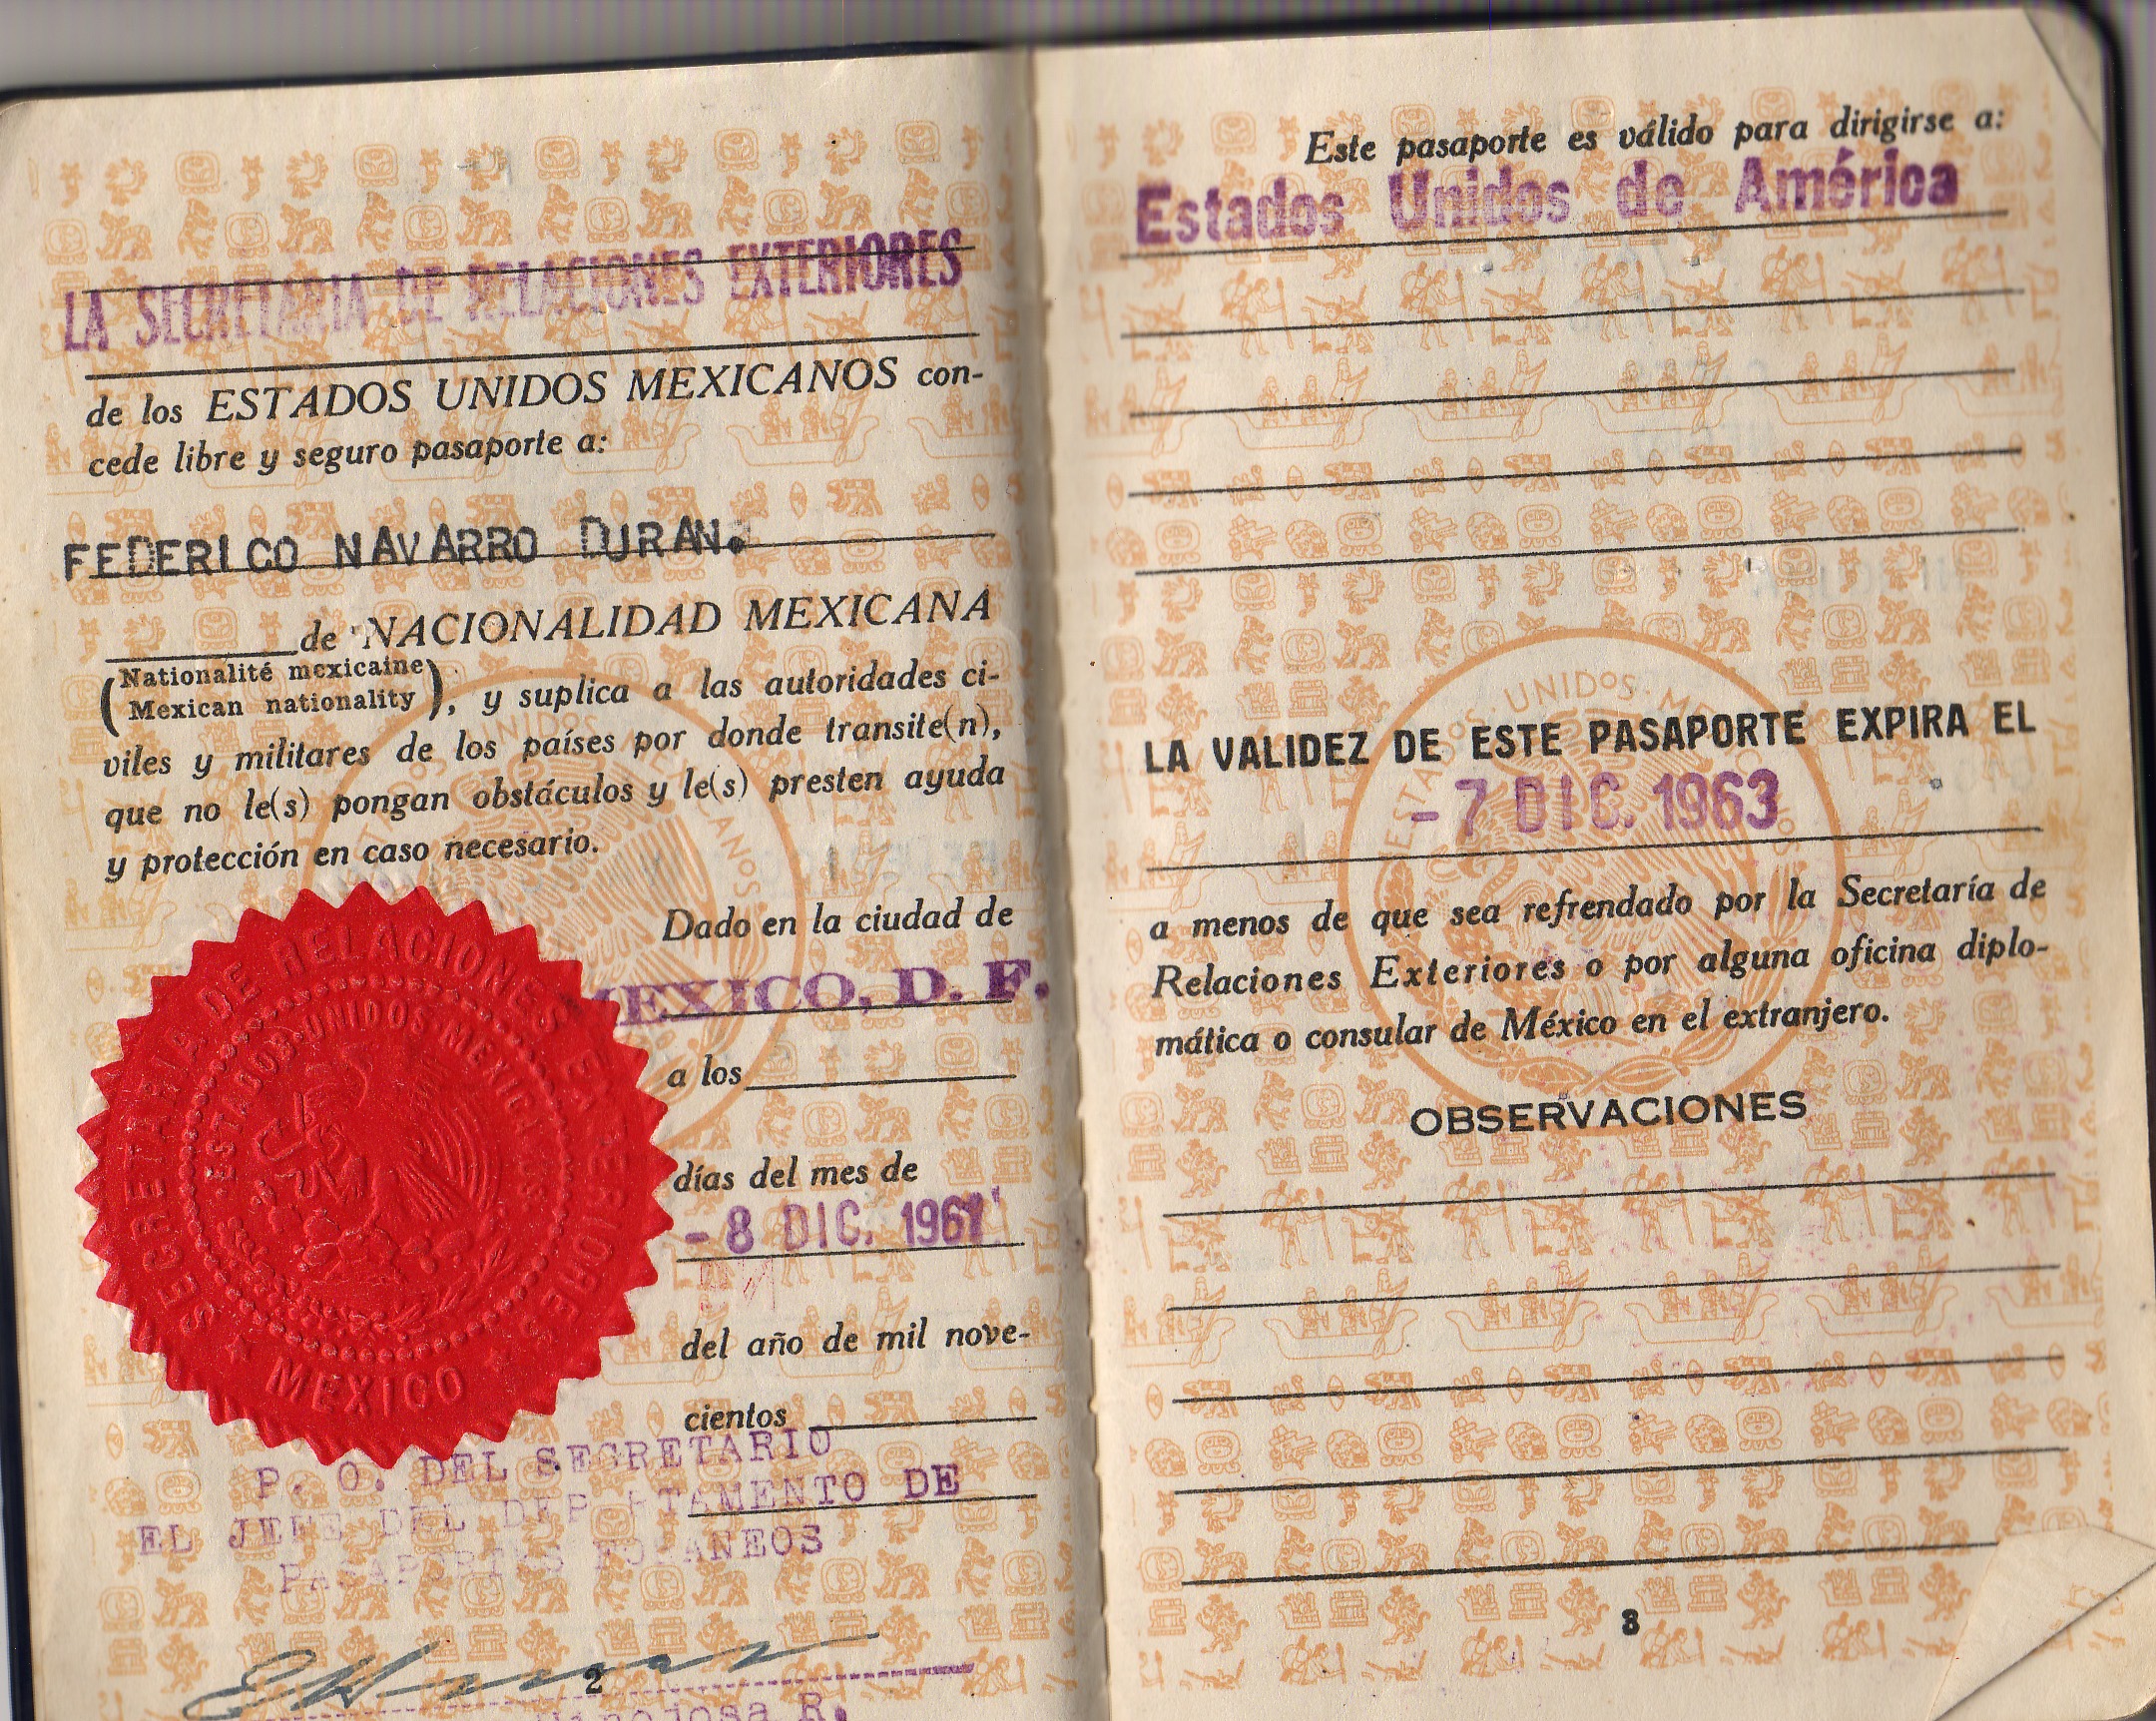 LA SECRETARIA DE RELACIONES EXTERIORES
de los ESTADOS UNIDOS MEXICANOS con-
cede libre y seguro pasaporte a:
FEDERICO NAVARRO DURAN.
de NACIONALIDAD MEXICANA
(Nationalité mexicaine
Mexican nationality), y suplica a las autoridades ci-
viles y militares de los países por donde transite(n),
que no le(s) pongan obstáculos y le(s) presten ayuda
y protección en caso necesario.
Dado en la ciudad de
MEXICO, D. F.
a los
días del mes de
- 8 DIC. 1961
del año de mil nove-
cientos
SECRETARIA DE RELACIONES EXTERIORES
ESTADOS UNIDOS MEXICANOS
MEXICO
P. O. DEL SECRETARIO
EL JEFE DEL DEPARTAMENTO DE
PASAPORTES FORANEOS
2
Hinojosa R.
Este pasaporte es válido para dirigirse a:
Estados Unidos de América
LA VALIDEZ DE ESTE PASAPORTE EXPIRA EL
- 7 DIC. 1963
a menos de que sea refrendado por la Secretaría de
Relaciones Exteriores o por alguna oficina diplo-
mática o consular de México en el extranjero.
OBSERVACIONES
3